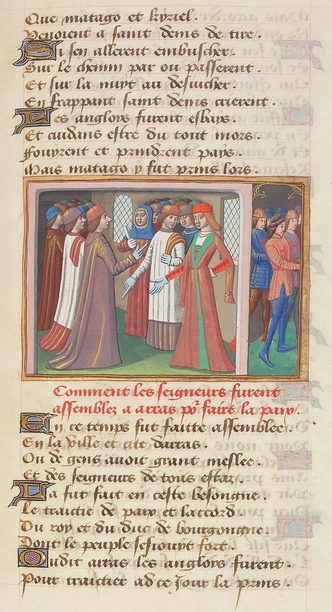 Que matago et kyriel.
Venoient a saint denis de tire.
Si sen allerent embuscher.
Sur le chemin par ou passerent.
Et sur la nuyt au desiucher.
En frappant saint denis crierent.
Les angloys furent esbays.
Et cuidans estre du tout mors.
Fouyrent et prindrent pays.
Mais matago y fut prins lors.
Comment les seigneurs furent
assemblez a arras po' faire la paix.
En ce temps fut faitte assemblee.
En la ville et cite darras.
Ou de gens avoit grant meslee.
Et des seigneurs de tous estaz.
La fut fait en ceste besongne.
Le traictie de paix et laccord.
Du roy et du duc de bourgongne.
Dont le peuple sesiouyt fort.
Oudit arras les angloys furent.
Pour traictier ad ce jour la prins.